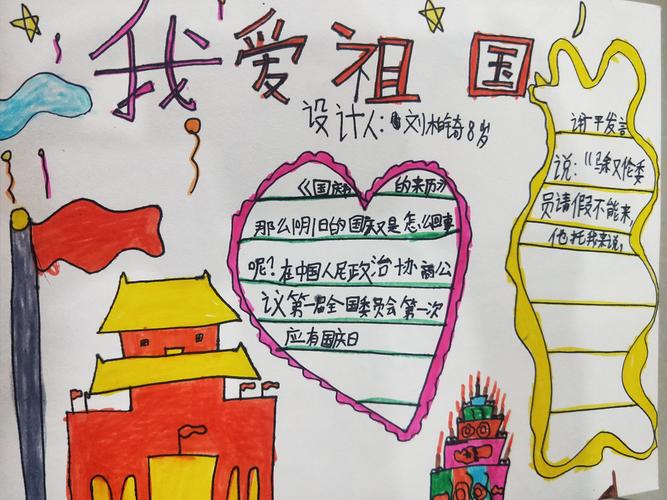 我爱祖国
设计人:刘柏锜8岁
《国庆 的来历》
那么10月1日的国庆又是怎么回事
呢?在中国人民政治协商会
议第一届全国委员会第一次
应有国庆日
平发言
说:"马叙伦委
员请假不能来,
他托我来说,